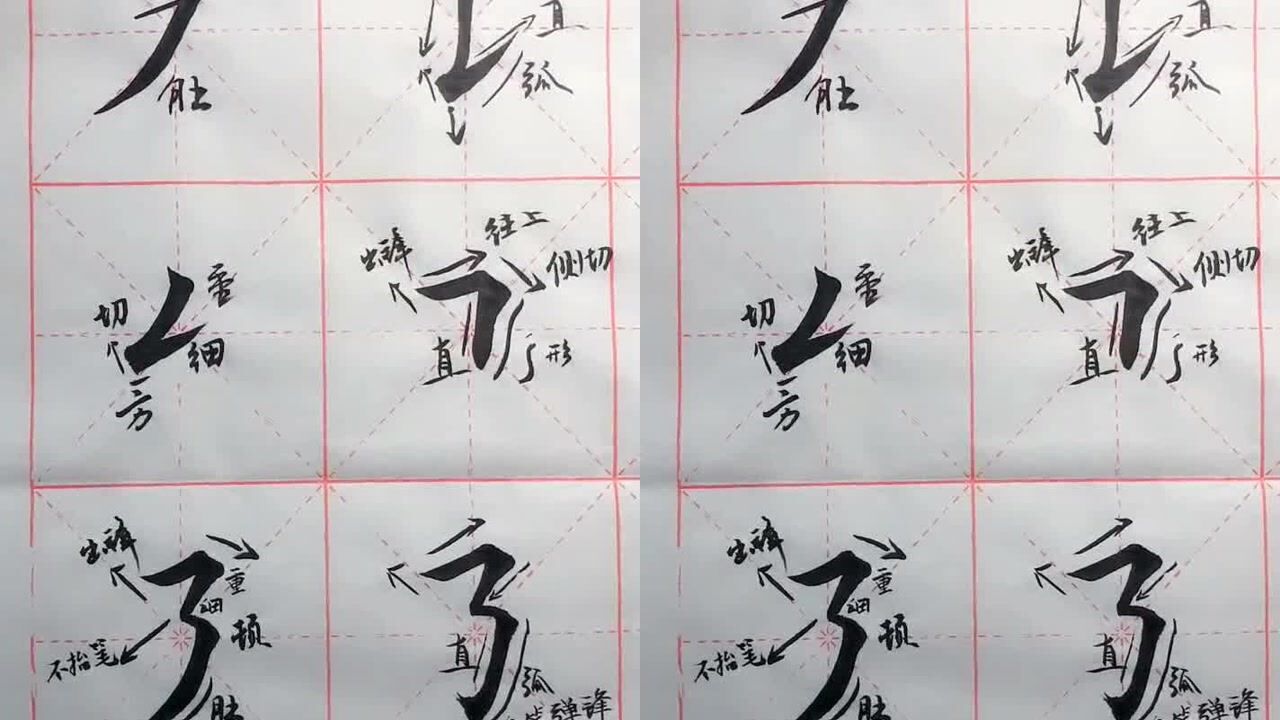 直
肚
弧
往上
出锋
侧切
重
切
细
直
形
方
出锋
重
细
顿
不抬笔
直
弧
肚
弹锋
直
肚
弧
往上
出锋
侧切
重
切
细
直
形
方
出锋
重
细
顿
不抬笔
直
弧
肚
弹锋